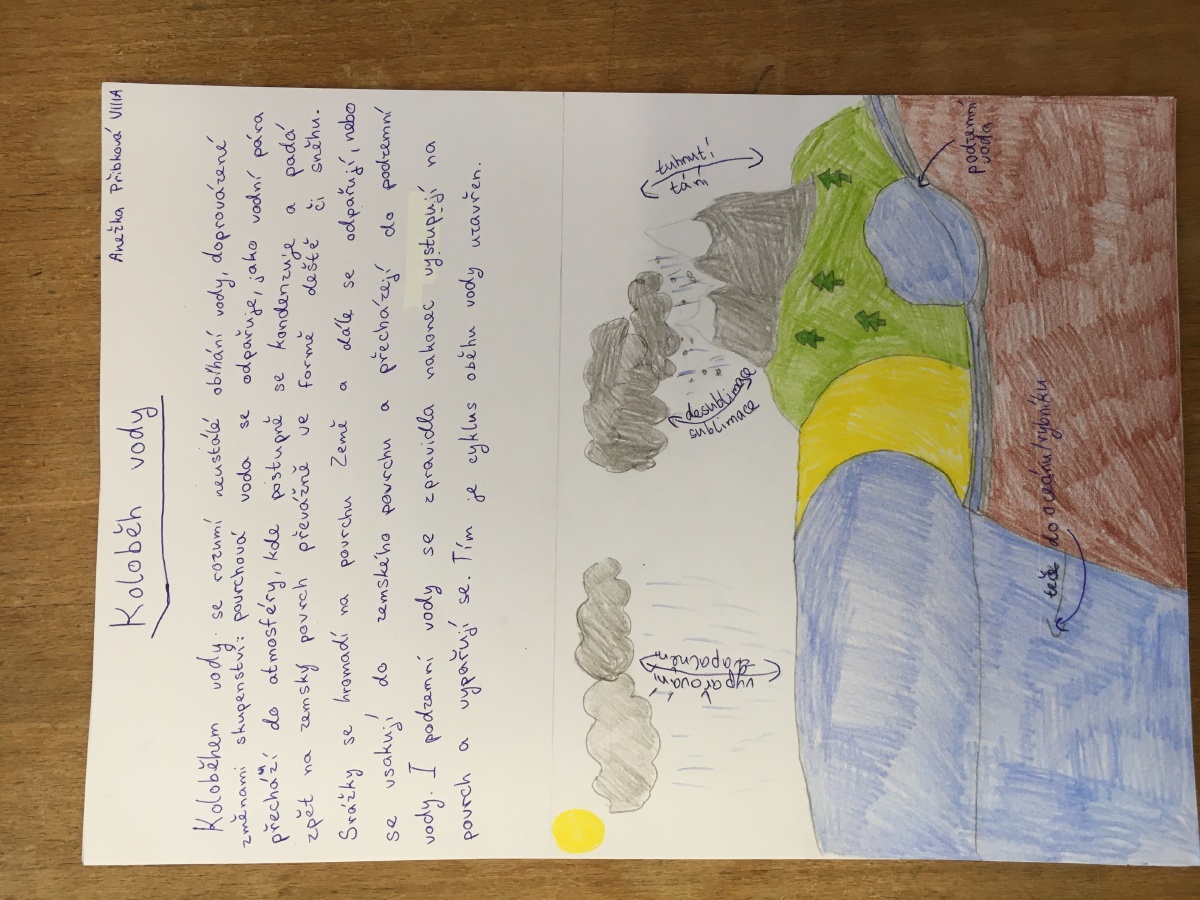 Anežka Přibková VIIIA
Koloběh vody
Koloběhem vody se rozumí neustálé obíhání vody, doprovázené
změnami skupenství: povrchová voda se odpařuje, jako vodní pára
přechází do atmosféry, kde postupně se kondenzuje a padá
zpět na zemský povrch převážně ve formě deště či sněhu.
Srážky se hromadí na povrchu Země a dále se odpařují, nebo
se vsakují do zemského povrchu a přecházejí do podzemní
vody. I podzemní vody se zpravidla nakonec vystupují na
povrch a vypařují se. Tím je cyklus oběhu vody uzavřen.
tuhnutí
tání
desublimace
sublimace
vypařování
podzemní
voda
teče do oceánu/rybníku